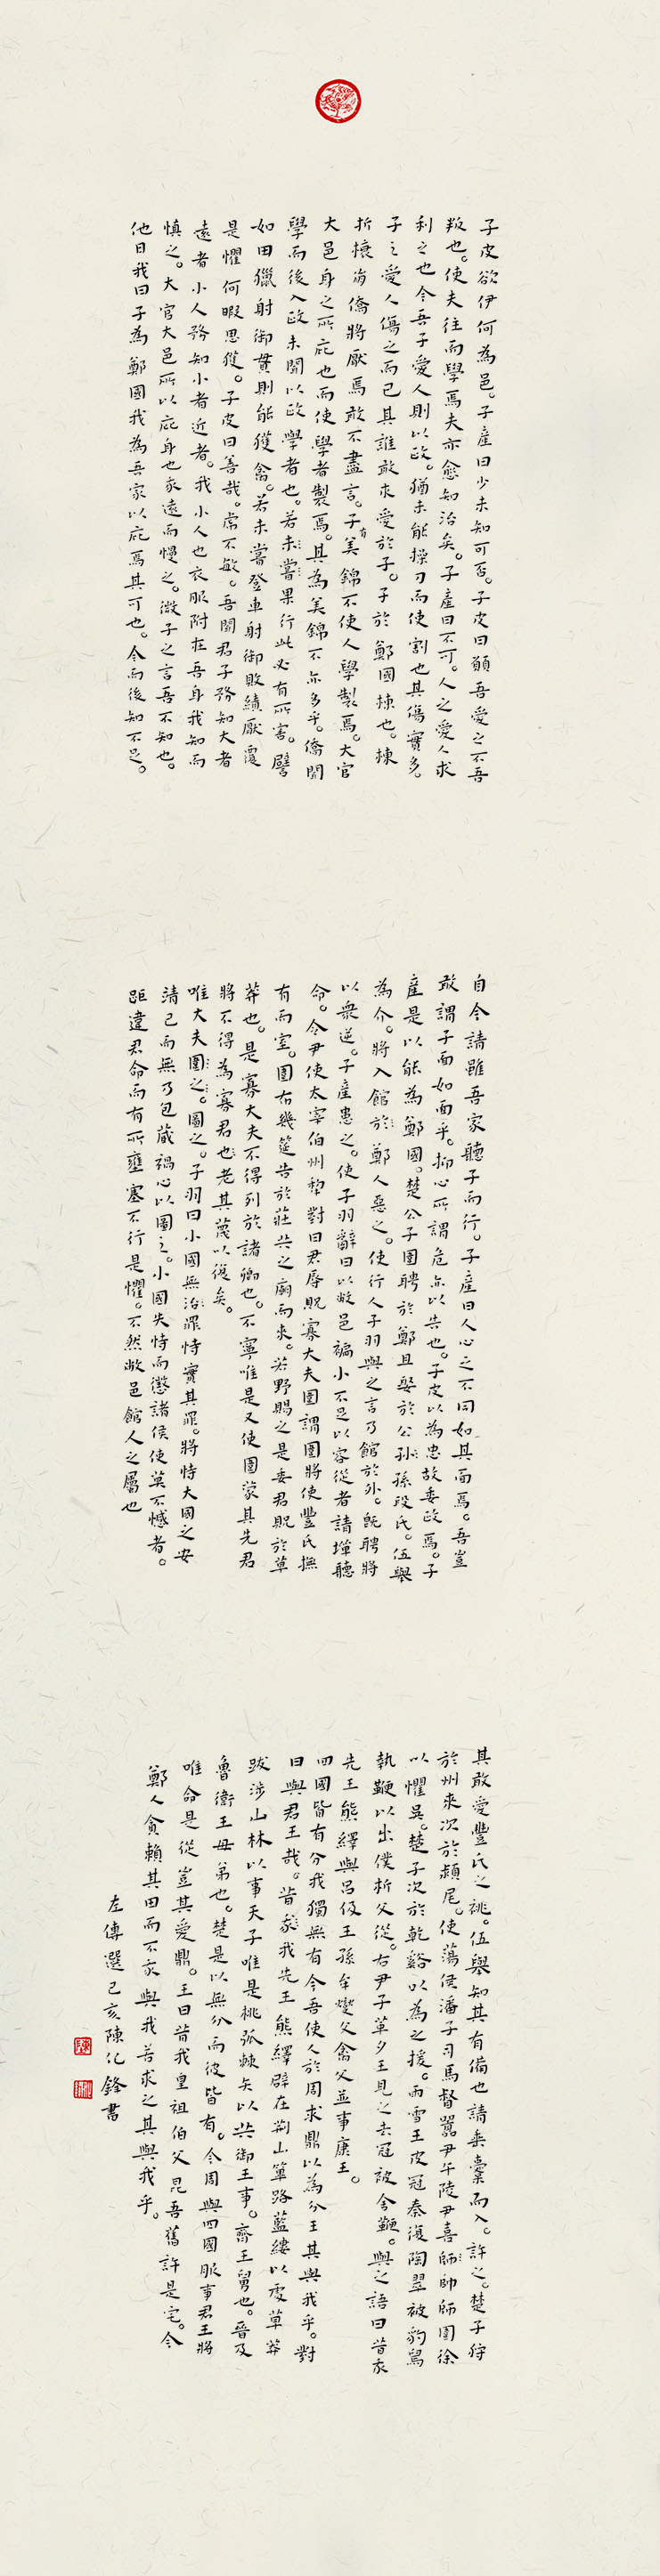 子皮欲伊何為邑。子產曰少未知可否。子皮曰願吾愛之不吾
叛也。使夫往而學焉夫亦愈知治矣。子產曰不可。人之愛人求
利之也今吾子愛人則以政。猶未能操刀而使割也其傷實多。
子之愛人傷之而已其誰敢求愛於子。子於鄭國棟也。棟
折榱崩僑將厭焉敢不盡言。子有美錦不使人學製焉。大官
大邑身之所庇也而使學者製焉。其為美錦不亦多乎。僑聞
學而後入政未聞以政學者也。若未嘗果行此必有所害。譬
如田獵射御貫則能獲禽。若未嘗登車射御敗績厭覆
是懼何暇思獲。子皮曰善哉。虎不敏。吾聞君子務知大者
遠者小人務知小者近者。我小人也衣服附在吾身我知而
慎之。大官大邑所以庇身也我遠而慢之。微子之言吾不知也。
他日我曰子為鄭國我為吾家以庇焉其可也。今而後知不足。
自今請雖吾家聽子而行。子產曰人心之不同如其面焉。吾豈
敢謂子面如面乎。抑心所謂危亦以告也。子皮以為忠故委政焉。子
產是以能為鄭國。楚公子圍聘於鄭且娶於公孫孫段氏。伍舉
為介。將入館於鄭人惡之。使行人子羽與之言乃館於外。既聘將
以眾逆。子產患之。使子羽辭曰以敝邑褊小不足以容從者請墠聽
命。令尹使太宰伯州犁對曰君辱貺寡大夫圍謂圍將使豐氏撫
有而室。圍布幾筵告於莊共之廟而來。若野賜之是委君貺於草
莽也。是寡大夫不得列於諸卿也。不寧唯是又使圍蒙其先君
將不得為寡君也老其蔑以復矣。
唯大夫圖之。圖之。子羽曰小國無治罪恃實其罪。將恃大國之安
靖己而無乃包藏禍心以圖之。小國失恃而懲諸侯使莫不憾者。
距違君命而有所壅塞不行是懼。不然敝邑館人之屬也
其敢愛豐氏之祧。伍舉知其有備也請垂櫜而入。許之。楚子狩
於州來次於潁尾。使蕩侯潘子司馬督囂尹午陵尹喜師帥師圍徐
以懼吳。楚子次於乾谿以為之援。雨雪王皮冠秦復陶翠被豹舄
執鞭以出僕析父從。右尹子革夕王見之去冠被舍鞭。與之語曰昔我
先王熊繹與呂伋王孫牟燮父禽父並事康王。
四國皆有分我獨無有今吾使人於周求鼎以為分王其與我乎。對
曰與君王哉。昔我我先王熊繹辟在荊山篳路藍縷以處草莽
跋涉山林以事天子唯是桃弧棘矢以共御王事。齊王舅也。晉及
魯衛王母弟也。楚是以無分而彼皆有。今周與四國服事君王將
唯命是從豈其愛鼎。王曰昔我皇祖伯父昆吾舊許是宅。今
鄭人貪賴其田而不我與我若求之其與我乎。
左傳選己亥陳化鋒書